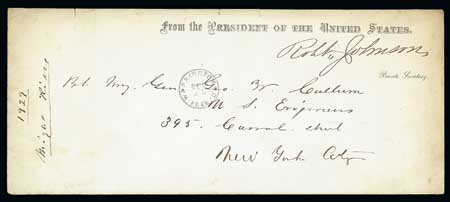 From the PRESIDENT OF THE UNITED STATES.
Robt Johnson
Private Secretary.
Bt. Maj. Gen. Geo. W. Cullum
U. S. Engineers
395. Carroll street
New York City
WASHINGTON
1927